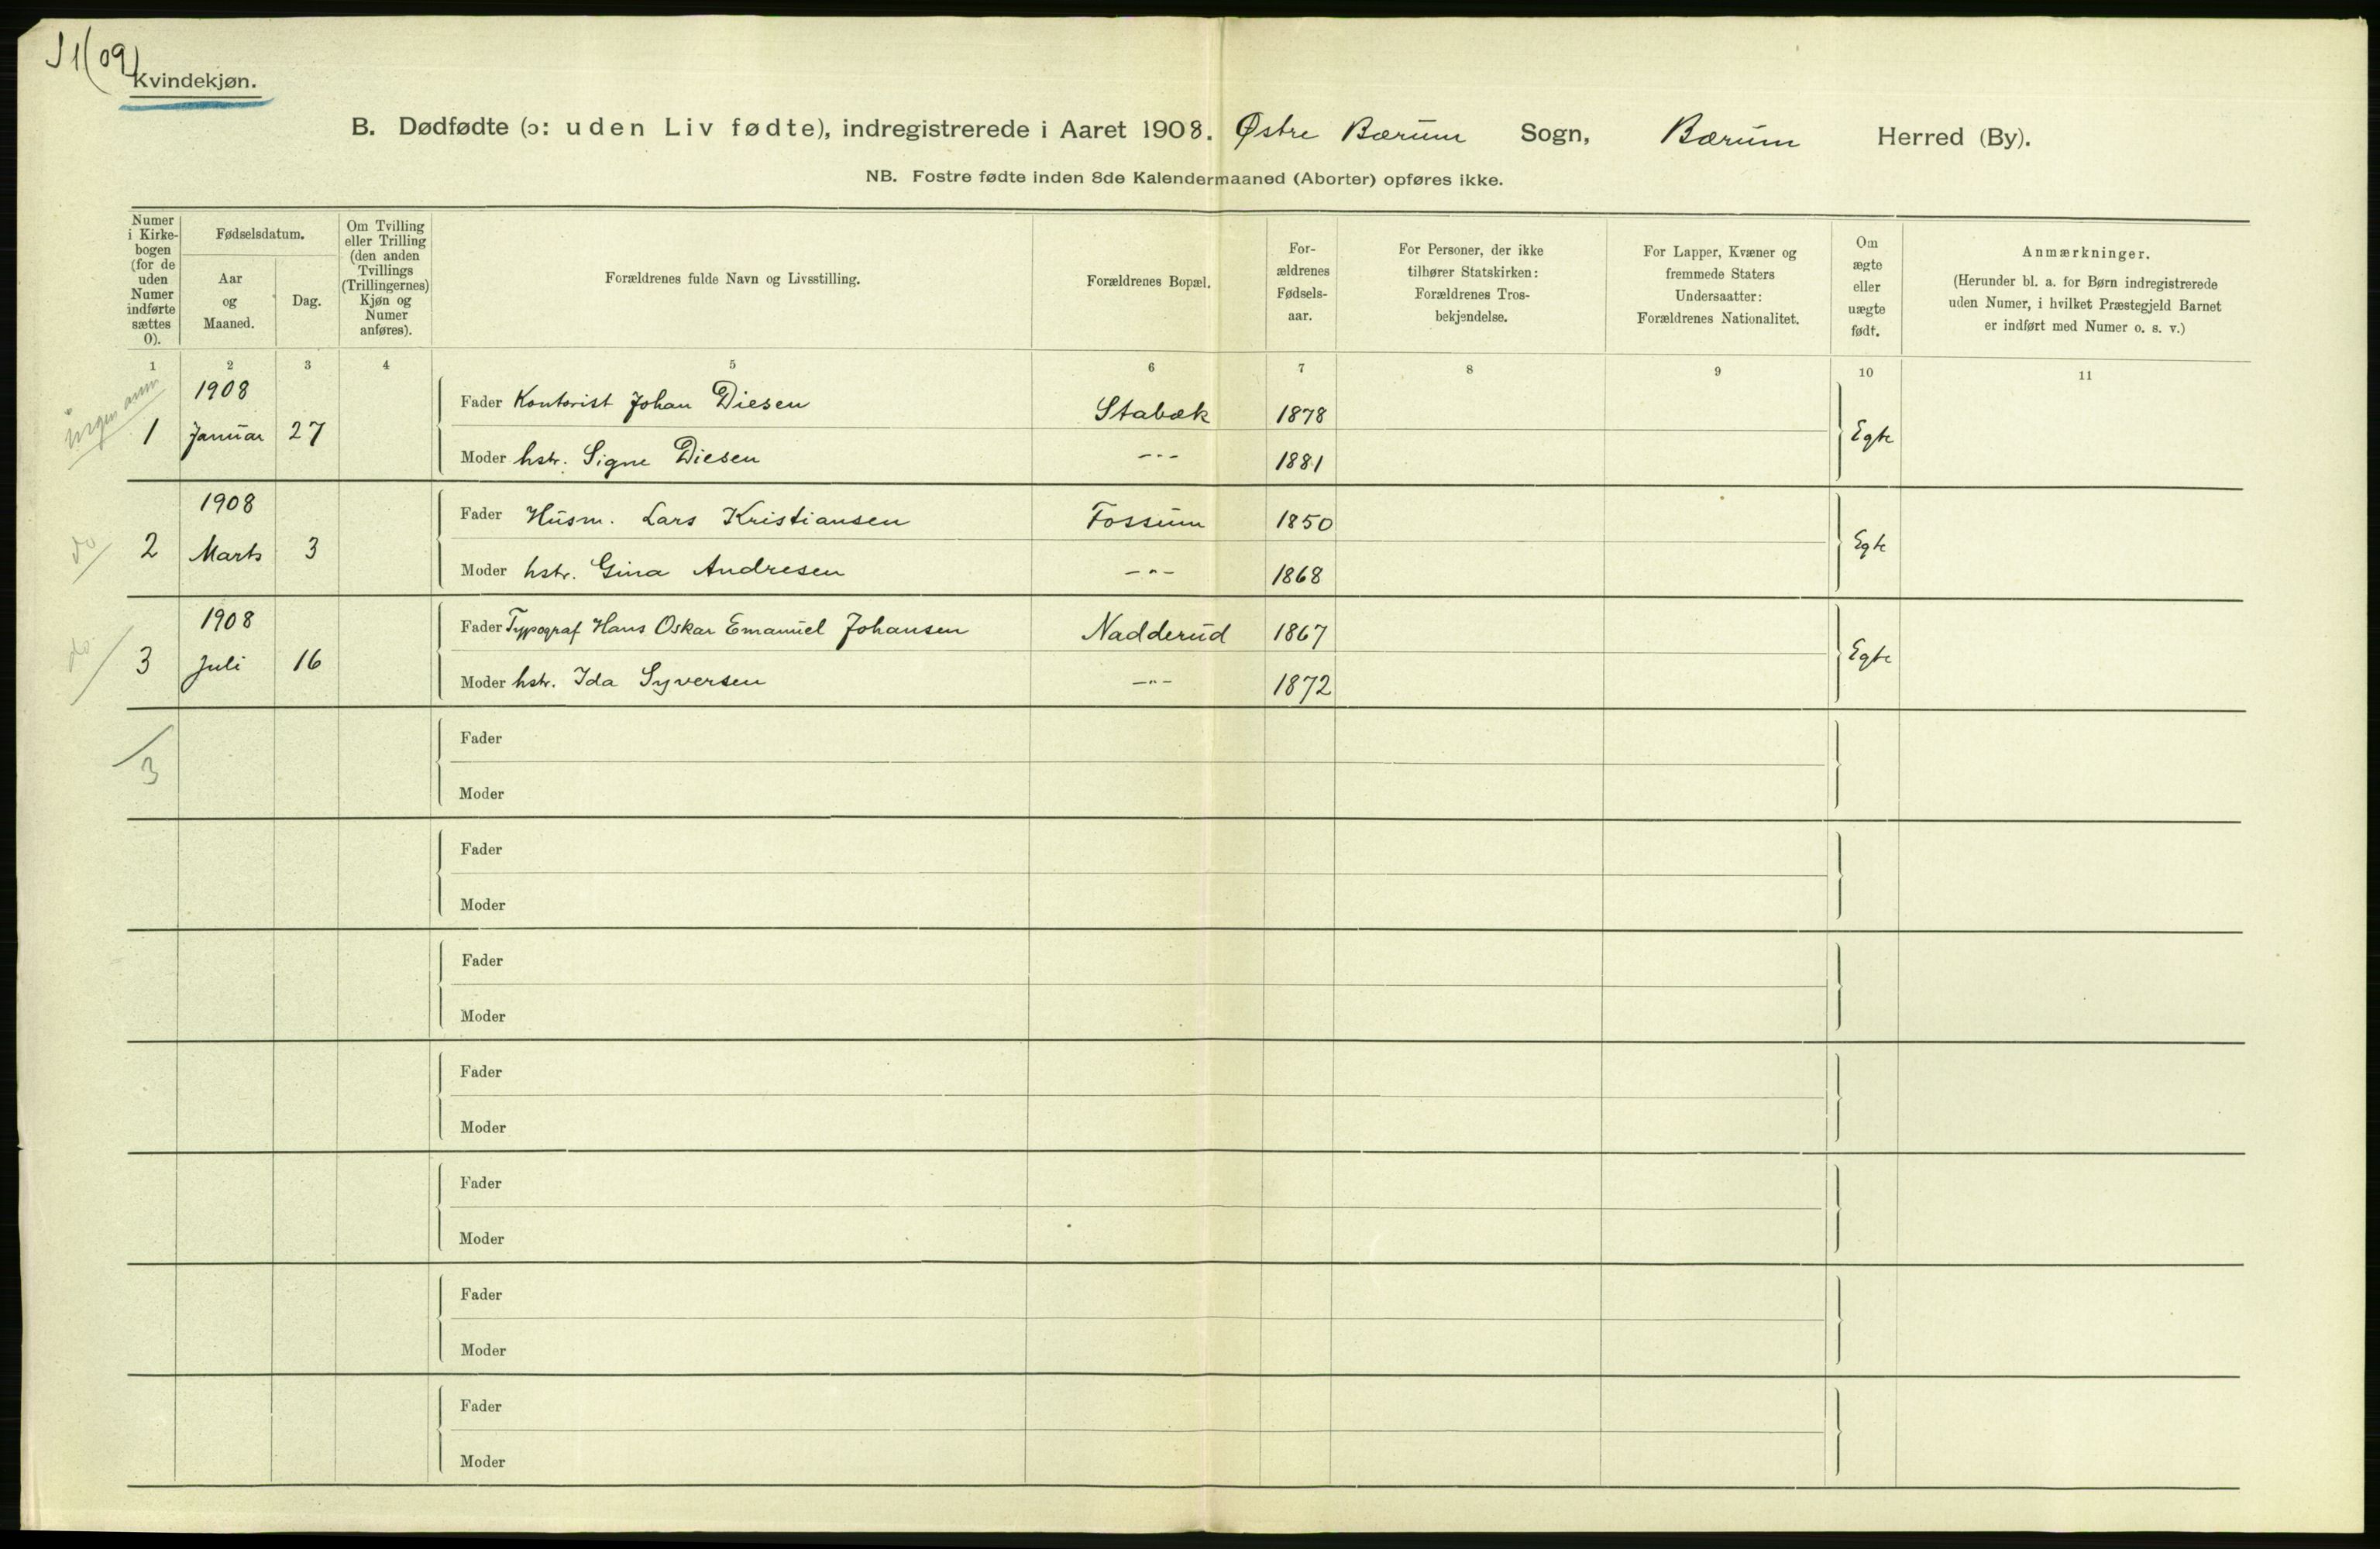 J1(09)
Kvindekjøn.
B. Dødfødte (ɔ: uden Liv fødte), indregistrerede i Aaret 1908. Østre Bærum Sogn, Bærum Herred (By).
NB. Fostre fødte inden 8de Kalendermaaned (Aborter) opføres ikke.
Numer i Kirke-bogen (for de uden Numer indførte sættes 0).
Fødselsdatum.
Aar og Maaned.
Dag.
Om Tvilling eller Trilling (den anden Tvillings (Trillingernes) Kjøn og Numer anføres).
Forældrenes fulde Navn og Livsstilling.
Forældrenes Bopæl.
For-ældrenes Fødsels-aar.
For Personer, der ikke tilhører Statskirken: Forældrenes Tros-bekjendelse.
For Lapper, Kvæner og fremmede Staters Undersaatter: Forældrenes Nationalitet.
Om ægte eller uægte født.
Anmærkninger.
(Herunder bl. a. for Børn indregistrerede uden Numer, i hvilket Præstegjeld Barnet er indført med Numer o. s. v.)
1 2 3 4 5 6 7 8 9 10 11
ingen anm
1908
1 Januar 27
Fader Kontorist Johan Diesen Stabæk 1878
Egte
Moder hstr. Signe Diesen -"- 1881
do
1908
2 Marts 3
Fader Husm. Lars Kristiansen Fossum 1850
Egte
Moder hstr. Gina Andresen -"- 1868
do
1908
3 Juli 16
Fader Typograf Hans Oskar Emanuel Johansen Nadderud 1867
Egte
Moder hstr. Ida Syversen -"- 1872
3
Fader
Moder
Fader
Moder
Fader
Moder
Fader
Moder
Fader
Moder
Fader
Moder
Fader
Moder